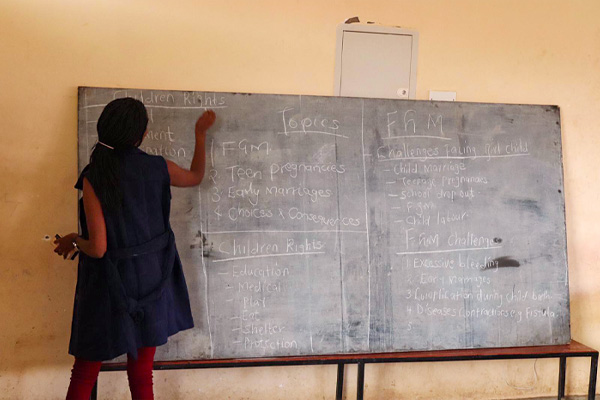 Children Rights
Topics
1 FGM
2 Teen pregnancies
3 Early Marriages
4 Choices & Consequences
Children Rights
- Education
- Medical
- Play
- Eat
- Shelter
- Protection
FGM
Challenges facing girl child
- Child Marriage
- Teenage Pregnancies
- School drop out
- Child labour
FGM Challenges
1 Excessive bleeding
2 Early Marriages
3 Complication during child birth
4 Diseases
5